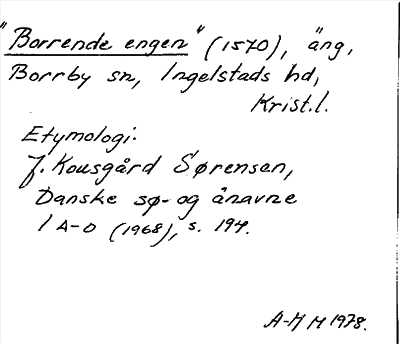 "Borrende engen" (1570), äng,
Borrby sn, Ingelstads hd,
Krist.l.
Etymologi:
J. Kousgård Sørensen,
Danske sø- og ånavne
1 A-D (1968), s. 194.
A-M M 1978.